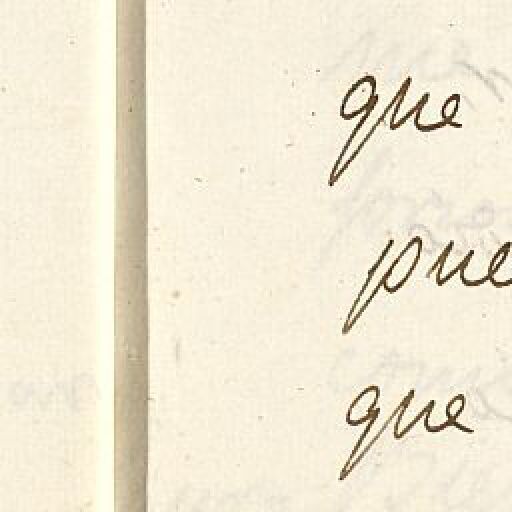 que
pue
que